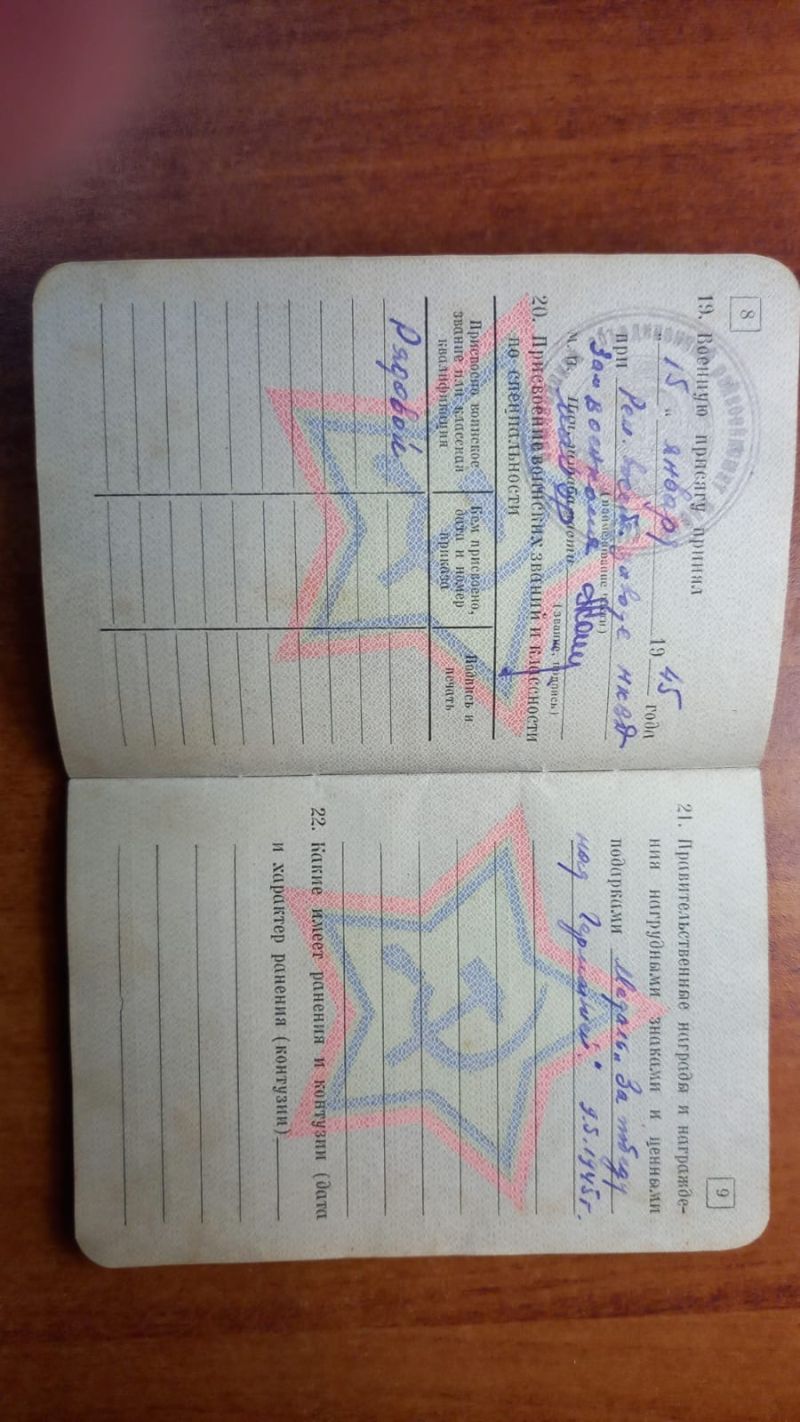 8
19. Военную присягу принял
„15“ январ 1945 года
при Рем. восст. заводе НКВД
(наименование части)
Зам военкома
М.П.
майор
(звание, подпись)
20. Присвоение воинских званий и классности
по специальности
Присвоено воинское
звание или классная
квалификация
Кем присвоено,
дата и номер
приказа
Подпись и
печать
Рядовой
9
21. Правительственные награды и награжде-
ния нагрудными знаками и ценными
подарками Медаль „За победу
над Германией." 9.5.1945г.
22. Какие имеет ранения и контузии (дата
и характер ранения (контузии)